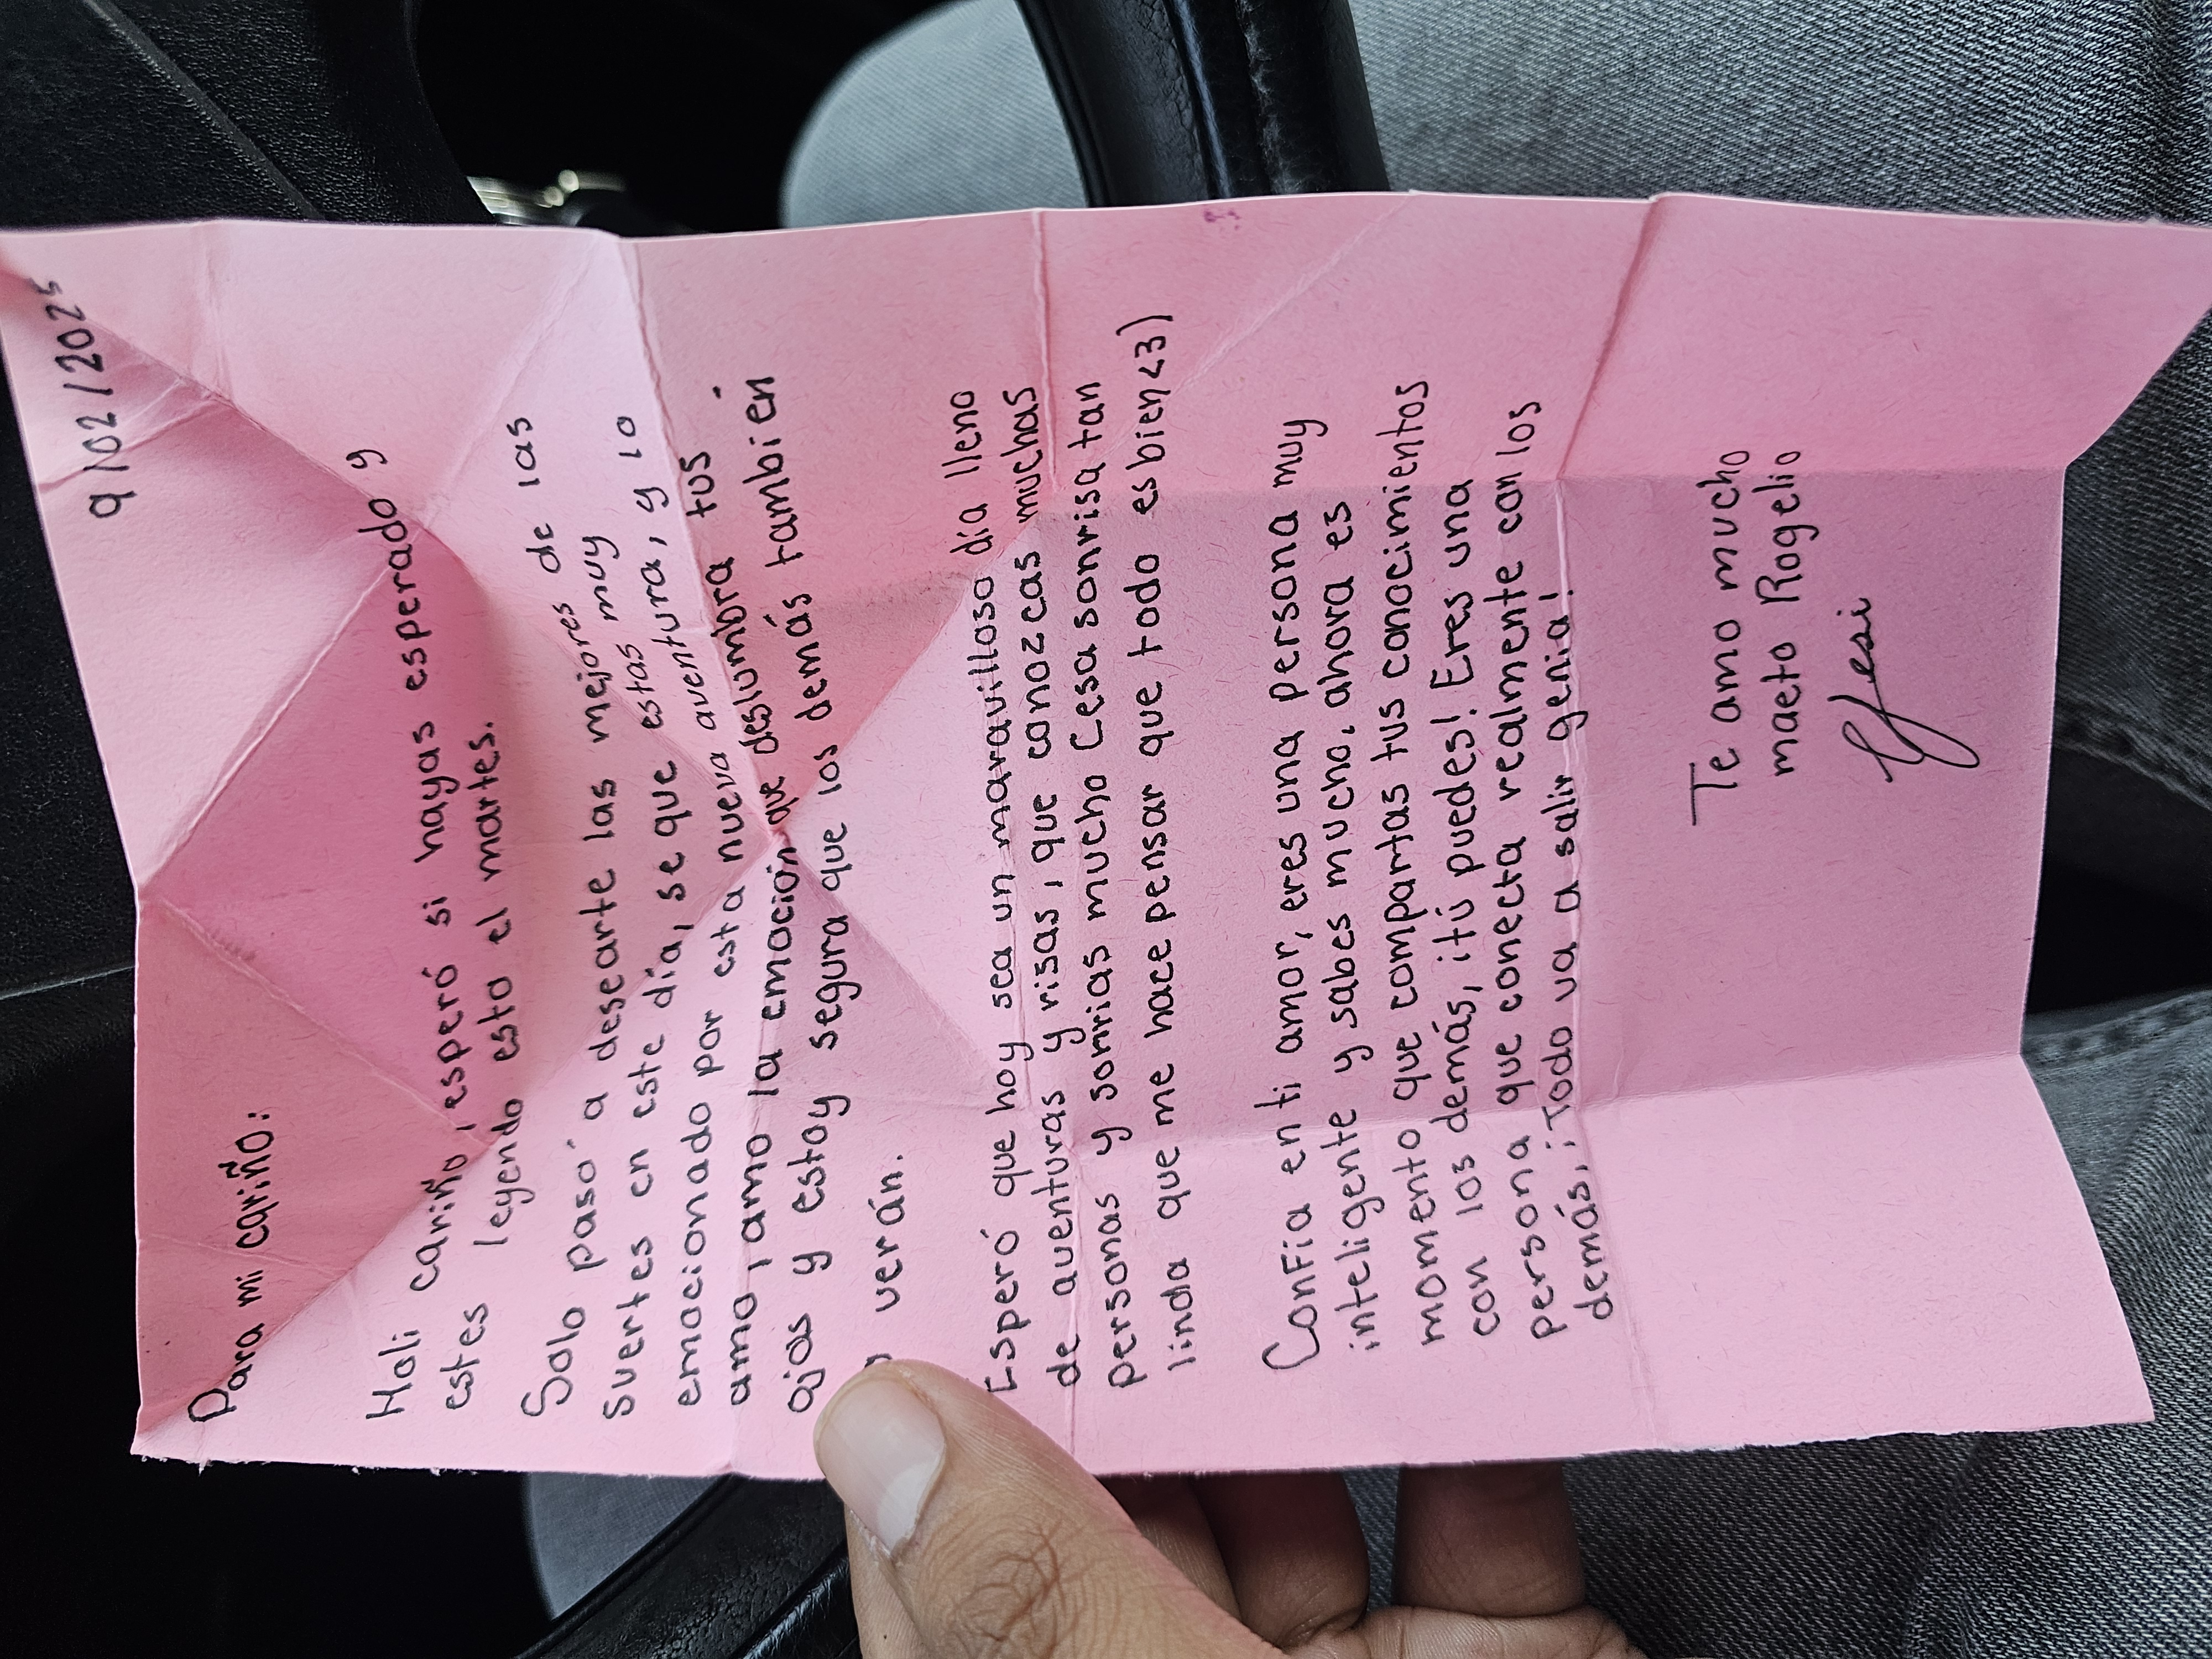 9/02/2025
Para mi cariño:
Holi cariño, esperó si hayas esperado y
estes leyendo esto el martes.
Solo pasó a desearte las mejores de las
suertes en este día, se que estas muy
emocionado por esta nueva aventura, y lo
amo, amo la emoción que deslumbra tus
ojos y estoy segura que los demás también
verán.
Esperó que hoy sea un maravilloso día lleno
de aventuras y risas, que conozcas muchas
personas y sonrias mucho (esa sonrisa tan
linda que me hace pensar que todo es bien<3)
Confia en ti amor, eres una persona muy
inteligente y sabes mucho, ahora es
momento que compartas tus conocimientos
con los demás, ¡tú puedes! Eres una
persona que conecta realmente con los
demás, ¡Todo va a salir genia!
Te amo mucho
maeto Rogelio
Jesi